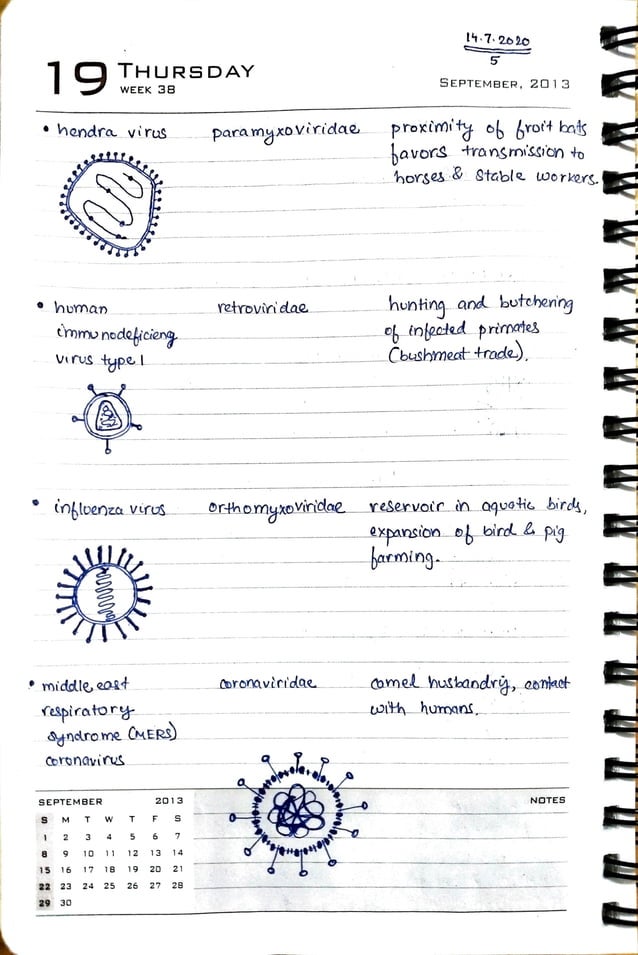 14.7.2020
5
19 THURSDAY
WEEK 38
SEPTEMBER, 2013
• hendra virus paramyxoviridae proximity of fruit bats
favors transmission to
horses & stable workers.
• human retroviridae hunting and butchering
immunodeficieng of infected primates
virus type 1 (bushmeat trade).
• influenza virus orthomyxoviridae reservoir in aquatic birds,
expansion of bird & pig
farming.
• middle east coronaviridae camel husbandry, contact
respiratory with humans.
syndrome (MERS)
coronavirus
SEPTEMBER 2013 NOTES
S M T W T F S
1 2 3 4 5 6 7
8 9 10 11 12 13 14
15 16 17 18 19 20 21
22 23 24 25 26 27 28
29 30